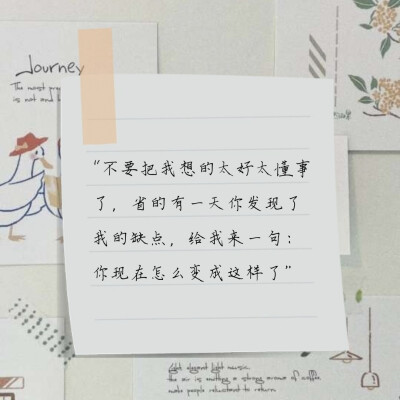 Journey
The most
is not and
"不要把我想的太好太懂事
了，省的有一天你发现了
我的缺点，给我来一句：
你现在怎么变成这样了"
light elegant light music.
the air is emitting a strong aroma of coffee.
make people reluctant to return